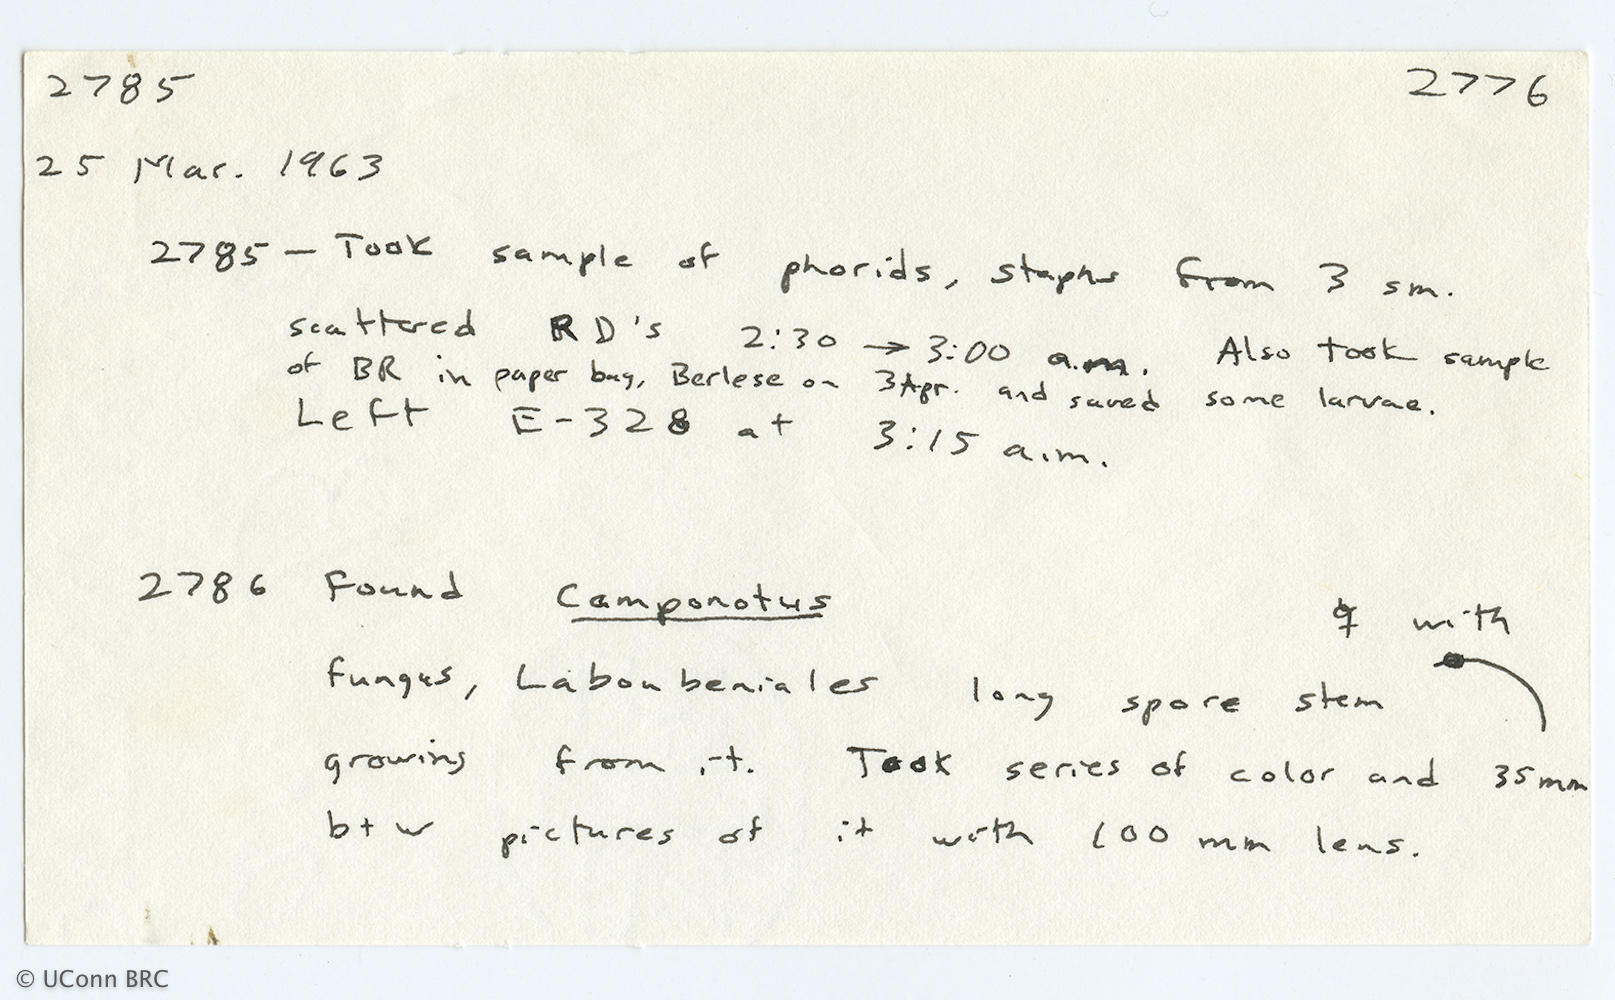 2785 2776
25 Mar. 1963
2785 — Took sample of phorids, staphs from 3 sm.
scattered RD's 2:30 → 3:00 a.m. Also took sample
of BR in paper bag, Berlese on 3 Apr. and saved some larvae.
Left E-328 at 3:15 a.m.
2786 Found Camponotus ☿ with
fungus, Laboubeniales long spore stem
growing from it. Took series of color and 35mm
b+w pictures of it with 100 mm lens.
© UConn BRC